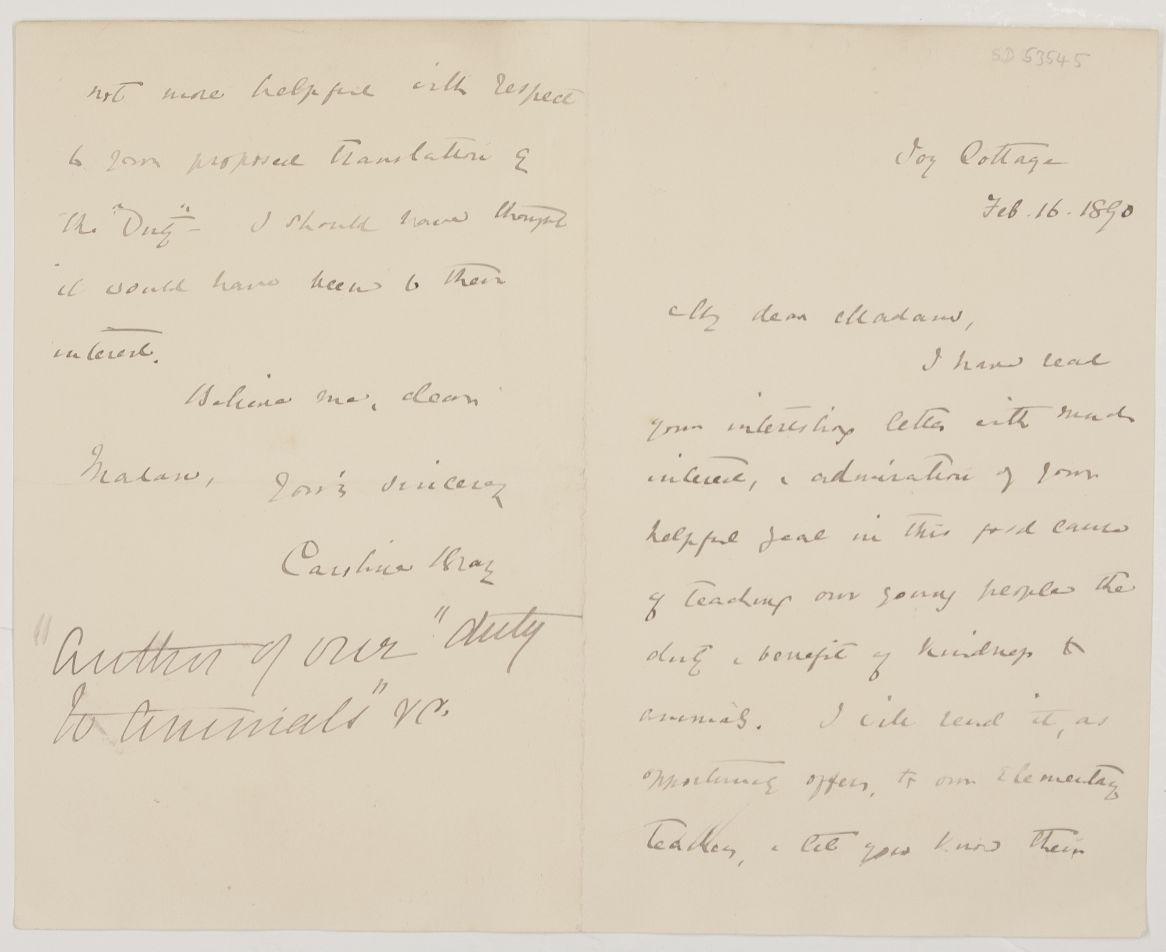 SD 53545
Ivy Cottage
Feb. 16. 1890
My dear Madam,
I have read
your interesting letter with much
interest, & admiration of your
helpful zeal in this good cause
of teaching our young people the
duty & benefit of kindness to
animals. I will send it, as
opportunity offers, to our Elementary
teachers, & let you know their
not more helpful with respect
to your proposed translation of
the "Duty" - I should have thought
it would have been to their
interest.
Believe me, dear
Madam, Yours sincerely
Caroline Bray
"Author of our "duty
to Animals" &c.